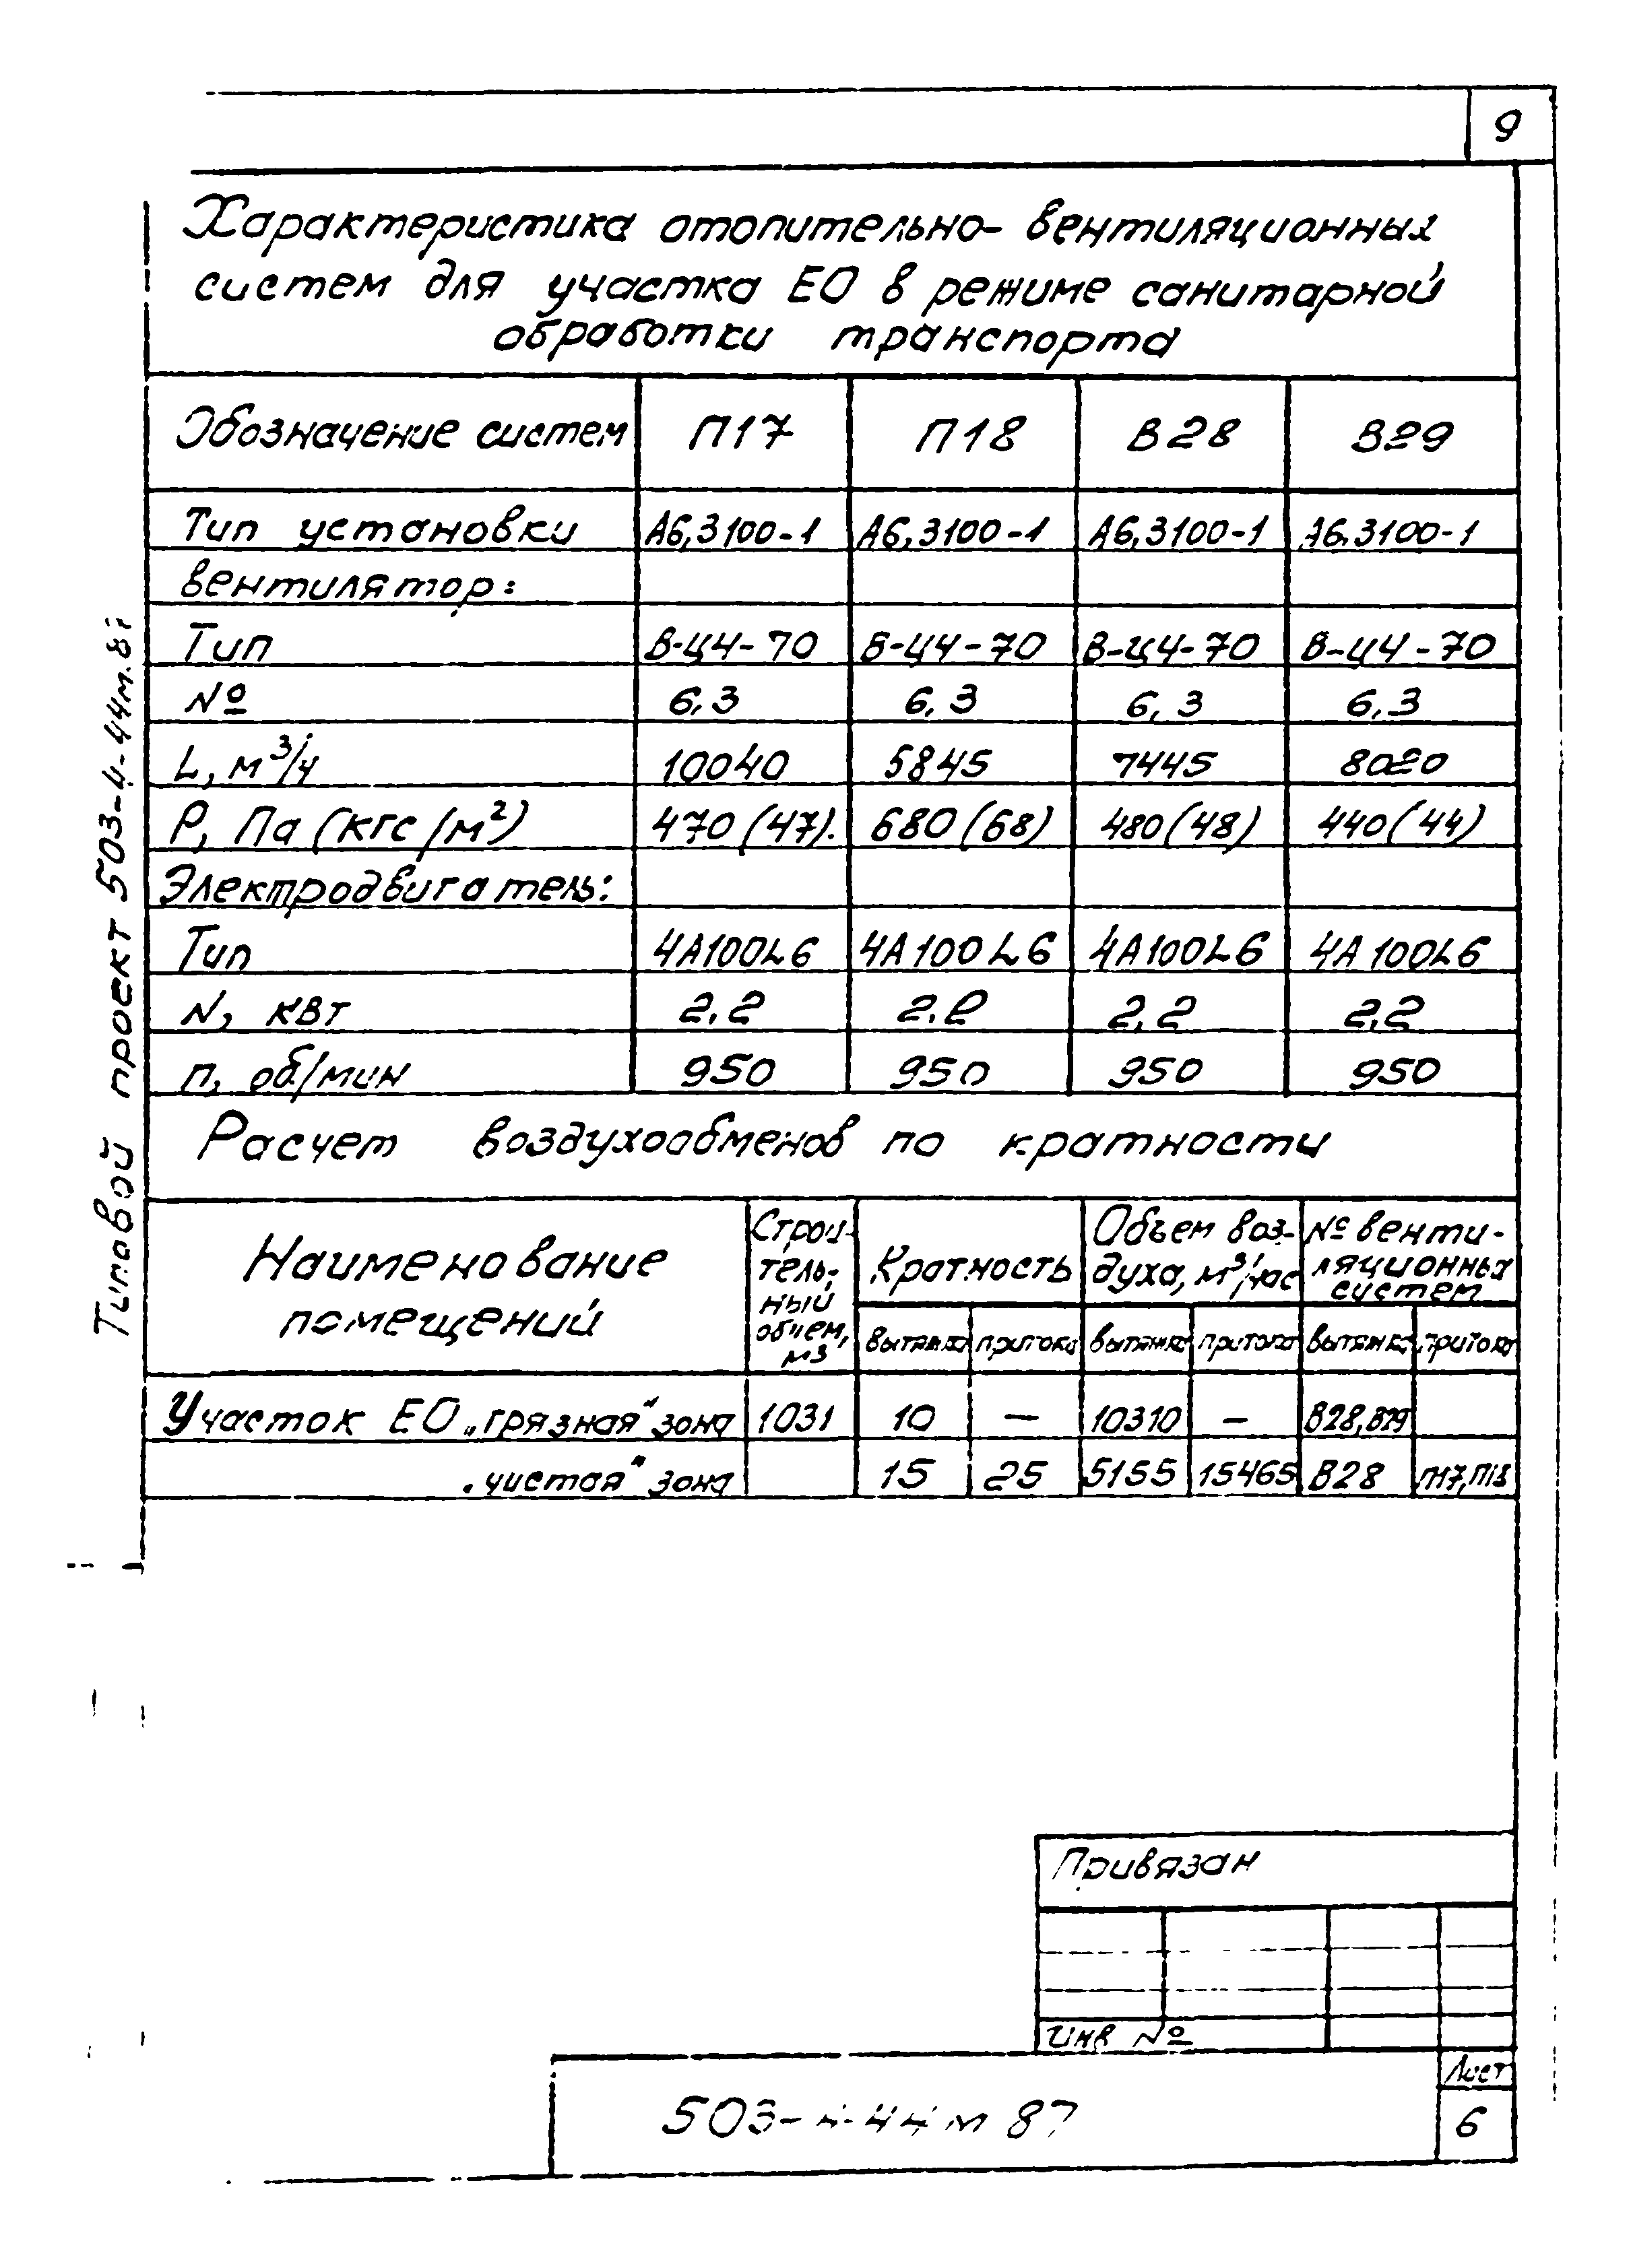 9
Характеристика отопительно-вентиляционных
систем для участка ЕО в режиме санитарной
обработки транспорта
Обозначение систем П17 П18 В28 В29
Тип установки А6,3100-1 А6,3100-1 А6,3100-1 А6.3100-1
вентилятор:
Тип В-Ц4-70 В-Ц4-70 В-Ц4-70 В-Ц4-70
№ 6,3 6,3 6,3 6,3
L, м³/ч 10040 5845 7445 8020
Р, Па (кгс/м²) 470(47). 680(68) 480(48) 440(44)
Электродвигатель:
Тип 4А100L6 4А100L6 4А100L6 4А100L6
N, квт 2,2 2,2 2,2 2,2
п, об/мин 950 950 950 950
Расчет воздухообменов по кратности
Наименование помещений
Строи-
тель-
ный
объем,
м3
Кратность
Объем воз-
духа, м³/час
№ венти-
ляционных
систем
вытяжка притока вытяжка притока вытяжка притока
Участок ЕО „грязная" зона 1031 10 — 10310 — В28,В29
„чистая" зона 15 25 5155 15465 В28 П17,П18
Типовой проект 503-4-44м.87
Привязан
Инв №
Лист
503-4-44 м 87
6